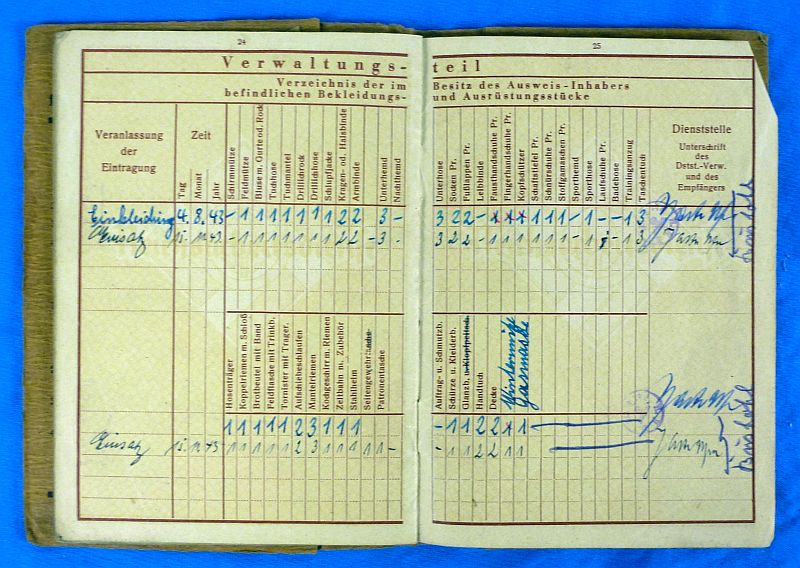 24
Verwaltungs-
Verzeichnis der im
befindlichen Bekleidungs-
Veranlassung
der
Eintragung
Zeit
Tag
Monat
Jahr
Schirmmütze
Feldmütze
Bluse m. Gurte od. Rock
Tuchhose
Tuchmantel
Drillichrock
Drillichhose
Schlupfjacke
Kragen- od. Halsbinde
Armbinde
Unterhemd
Nachthemd
Einkleidung 4. 8. 43 - 1 1 1 1 1 1 1 2 2 3 -
Einsatz 15. 11. 43. - 1 1 1 1 1 1 1 2 2 - 3 -
Hosenträger
Koppelriemen m. Schloß
Brotbeutel mit Band
Feldflasche mit Trinkb.
Tornister mit Trager.
Aufschiebeschlaufen
Mantelriemen
Kochgeschirr m. Riemen
Zeltbahn m. Zubehör
Stahlhelm
Seitengewehrtasche
Patronentasche
1 1 1 1 1 2 3 1 1 1
Einsatz 15. 11. 43 1 1 1 1 1 2 3 1 1 1 1 1 -
25
teil
Besitz des Ausweis-Inhabers
und Ausrüstungsstücke
Unterhose
Socken Pr.
Fußlappen Pr.
Leibbinde
Fausthandschuhe Pr.
Fingerhandschuhe Pr.
Kopfschützer
Schaftstiefel Pr.
Schnürschuhe Pr.
Stoffgamaschen Pr.
Sporthemd
Sporthose
Laufschuhe Pr.
Badehose
Trainingsanzug
Taschentuch
Dienststelle
Unterschrift
des
Dstst.-Verw.
und des
Empfängers
3 2 2 - x x x 1 1 1 - 1 - - 1 3
3 2 2 - 1 1 1 1 1 1 - 1 - 1 3
Auftrag- u. Schmutzb.
Schürze u. Kleiderb.
Glanzb. u. Klopfpeitsch.
Handtuch
Decke
Wintermütze
Gasmaske
- 1 1 2 2 x 1
- 1 1 2 2 1 1